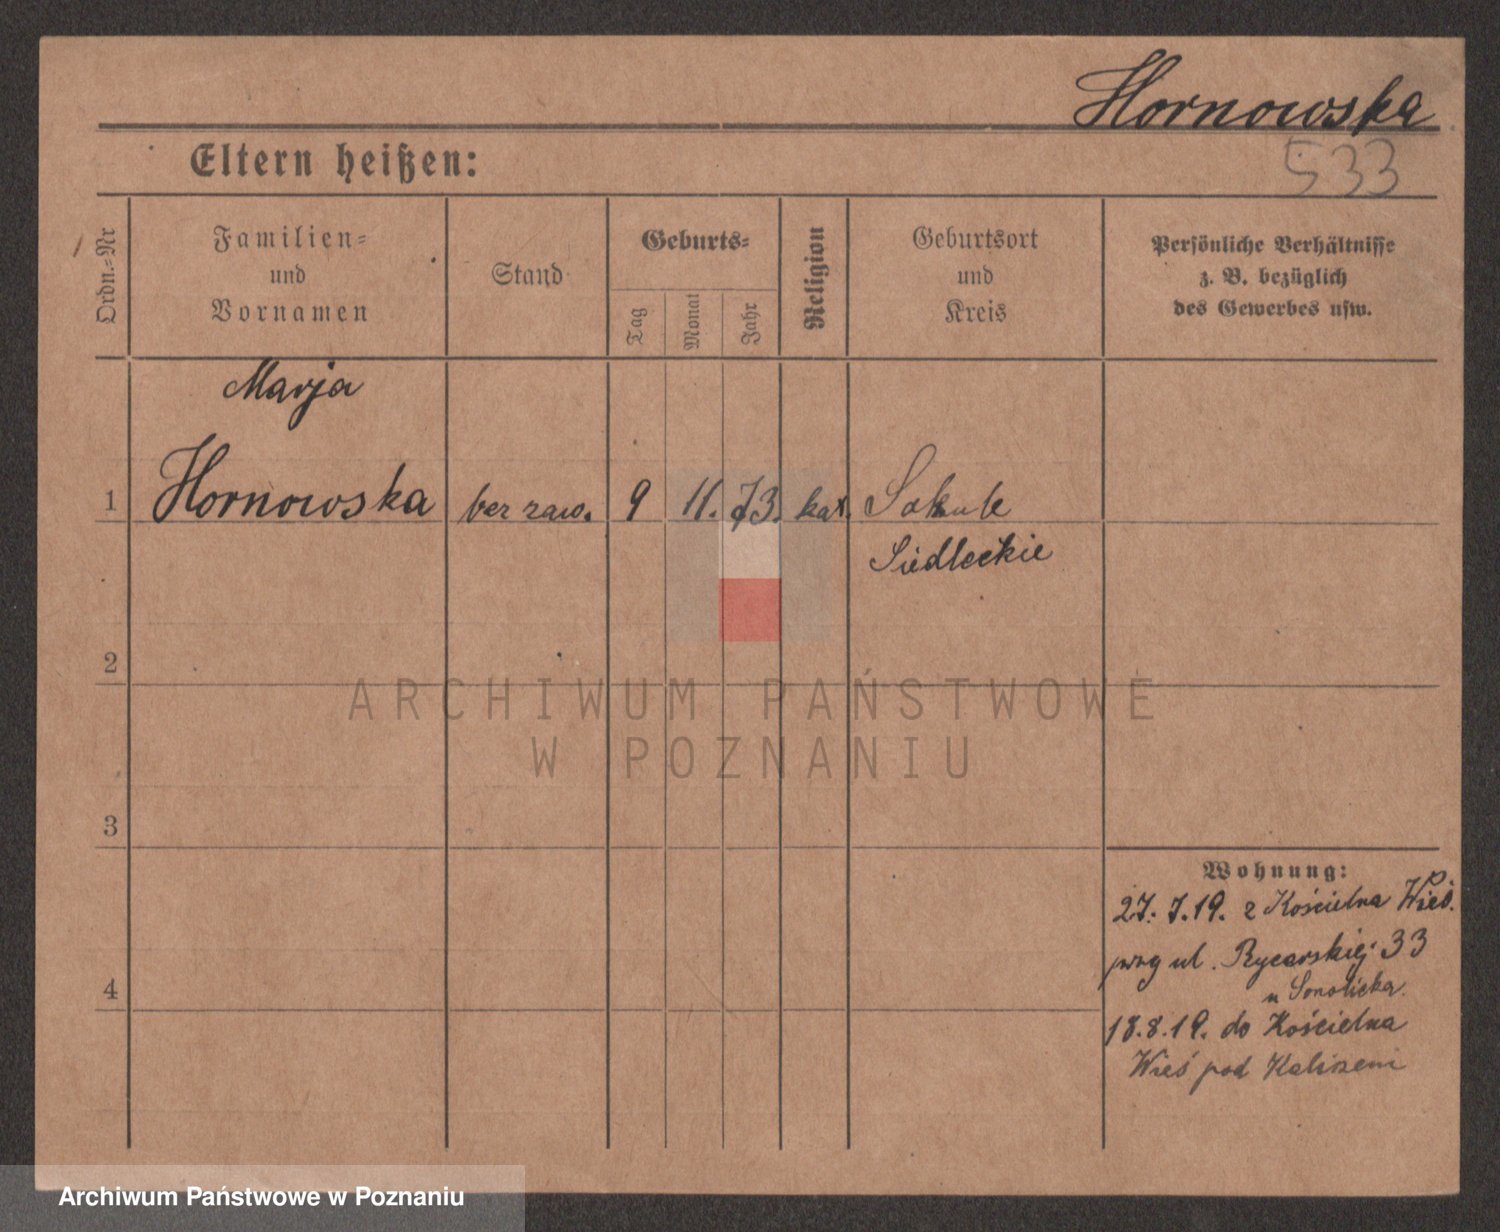 Hornowska
Eltern heißen:
533
Ordn.=Nr
Familien=
und
Vornamen
Stand
Geburts=
Tag
Monat
Jahr
Religion
Geburtsort
und
Kreis
Persönliche Verhältnisse
z. B. bezüglich
des Gewerbes usw.
Marja
1 Hornowska bez zaw. 9 11. 73. kat. Sokule
Siedleckie
2
3
4
Wohnung:
27. 7. 19. z Kościelna Wieś.
przy ul. Rycerskiej 33
u
18. 8. 19. do Kościelna
Wieś pod Kaliszem
ARCHIWUM PAŃSTWOWE
W POZNANIU
Archiwum Państwowe w Poznaniu